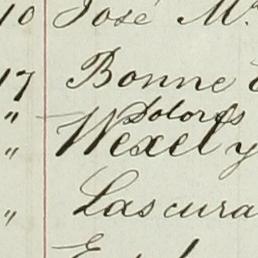 10 José M.
17 Bonne
" Dolores
" Wexel y
" Lascura